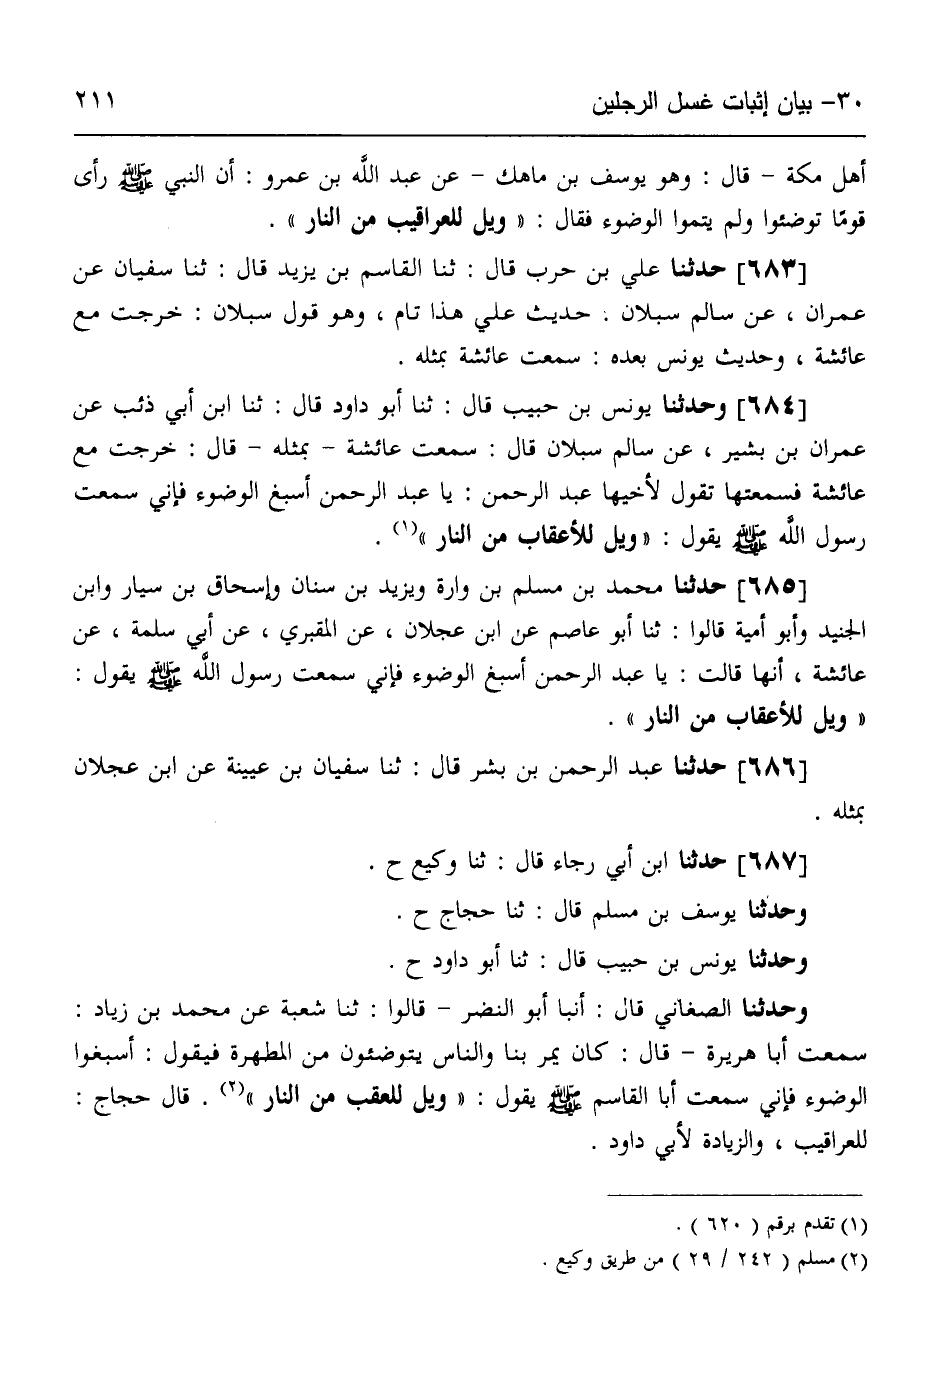 ٣٠- بيان إثبات غسل الرجلين ٢١١
أهل مكة - قال : وهو يوسف بن ماهك - عن عبد اللَّه بن عمرو : أن النبي ﷺ رأى
قومًا توضئوا ولم يتموا الوضوء فقال : « ويل للعراقيب من النار » .
[٦٨٣] حدثنا علي بن حرب قال : ثنا القاسم بن يزيد قال : ثنا سفيان عن
عمران ، عن سالم سبلان . حديث علي هذا تام ، وهو قول سبلان : خرجت مع
عائشة ، وحديث يونس بعده : سمعت عائشة بمثله .
[٦٨٤] وحدثنا يونس بن حبيب قال : ثنا أبو داود قال : ثنا ابن أبي ذئب عن
عمران بن بشير ، عن سالم سبلان قال : سمعت عائشة - بمثله - قال : خرجت مع
عائشة فسمعتها تقول لأخيها عبد الرحمن : يا عبد الرحمن أسبغ الوضوء فإني سمعت
رسول اللَّه ﷺ يقول : « ويل للأعقاب من النار »(١) .
[٦٨٥] حدثنا محمد بن مسلم بن وارة ويزيد بن سنان وإسحاق بن سيار وابن
الجنيد وأبو أمية قالوا : ثنا أبو عاصم عن ابن عجلان ، عن المقبري ، عن أبي سلمة ، عن
عائشة ، أنها قالت : يا عبد الرحمن أسبغ الوضوء فإني سمعت رسول اللَّه ﷺ يقول :
« ويل للأعقاب من النار » .
[٦٨٦] حدثنا عبد الرحمن بن بشر قال : ثنا سفيان بن عيينة عن ابن عجلان
بمثله .
[٦٨٧] حدثنا ابن أبي رجاء قال : ثنا وكيع ح .
وحدثنا يوسف بن مسلم قال : ثنا حجاج ح .
وحدثنا يونس بن حبيب قال : ثنا أبو داود ح .
وحدثنا الصغاني قال : أنبا أبو النضر - قالوا : ثنا شعبة عن محمد بن زياد :
سمعت أبا هريرة - قال : كان يمر بنا والناس يتوضئون من المطهرة فيقول : أسبغوا
الوضوء فإني سمعت أبا القاسم ﷺ يقول : « ويل للعقب من النار »(٢) . قال حجاج :
للعراقيب ، والزيادة لأبي داود .
(١) تقدم برقم ( ٦٢٠ ) .
(٢) مسلم ( ٢٤٢ / ٢٩ ) من طريق وكيع .